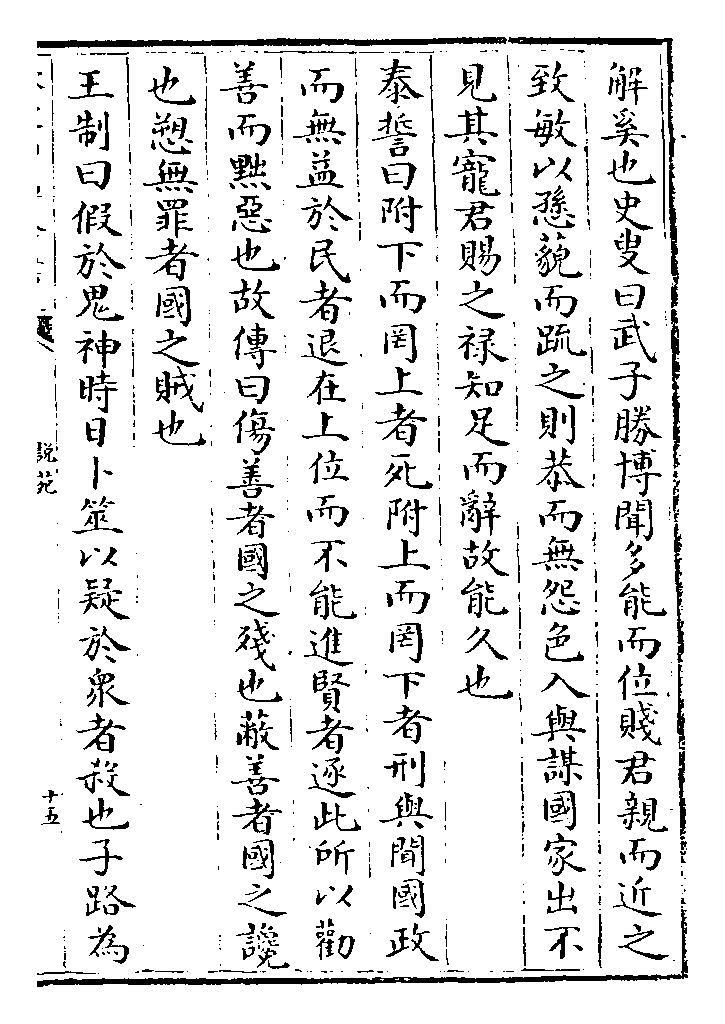 解奚也史叟曰武子勝博聞多能而位賤君親而近之
致敏以愻藐而疏之則恭而無怨色入與謀國家出不
見其寵君賜之禄知足而辭故能久也
泰誓曰附下而罔上者死附上而罔下者刑與聞國政
而無益於民者退在上位而不能進賢者逐此所以勸
善而黜惡也故傳曰傷善者國之殘也蔽善者國之讒
也愬無罪者國之賊也
王制曰假於鬼神時日卜筮以疑於衆者殺也子路為
説苑
十五